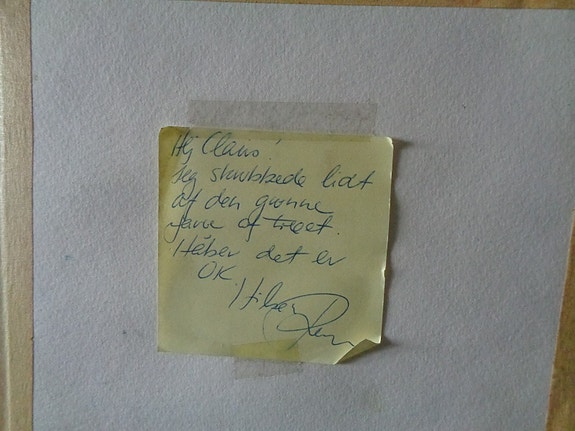 Hej Claus!
Jeg skrubbede lidt
af den grønne
farve af træet.
Håber det er
OK
Hilsen